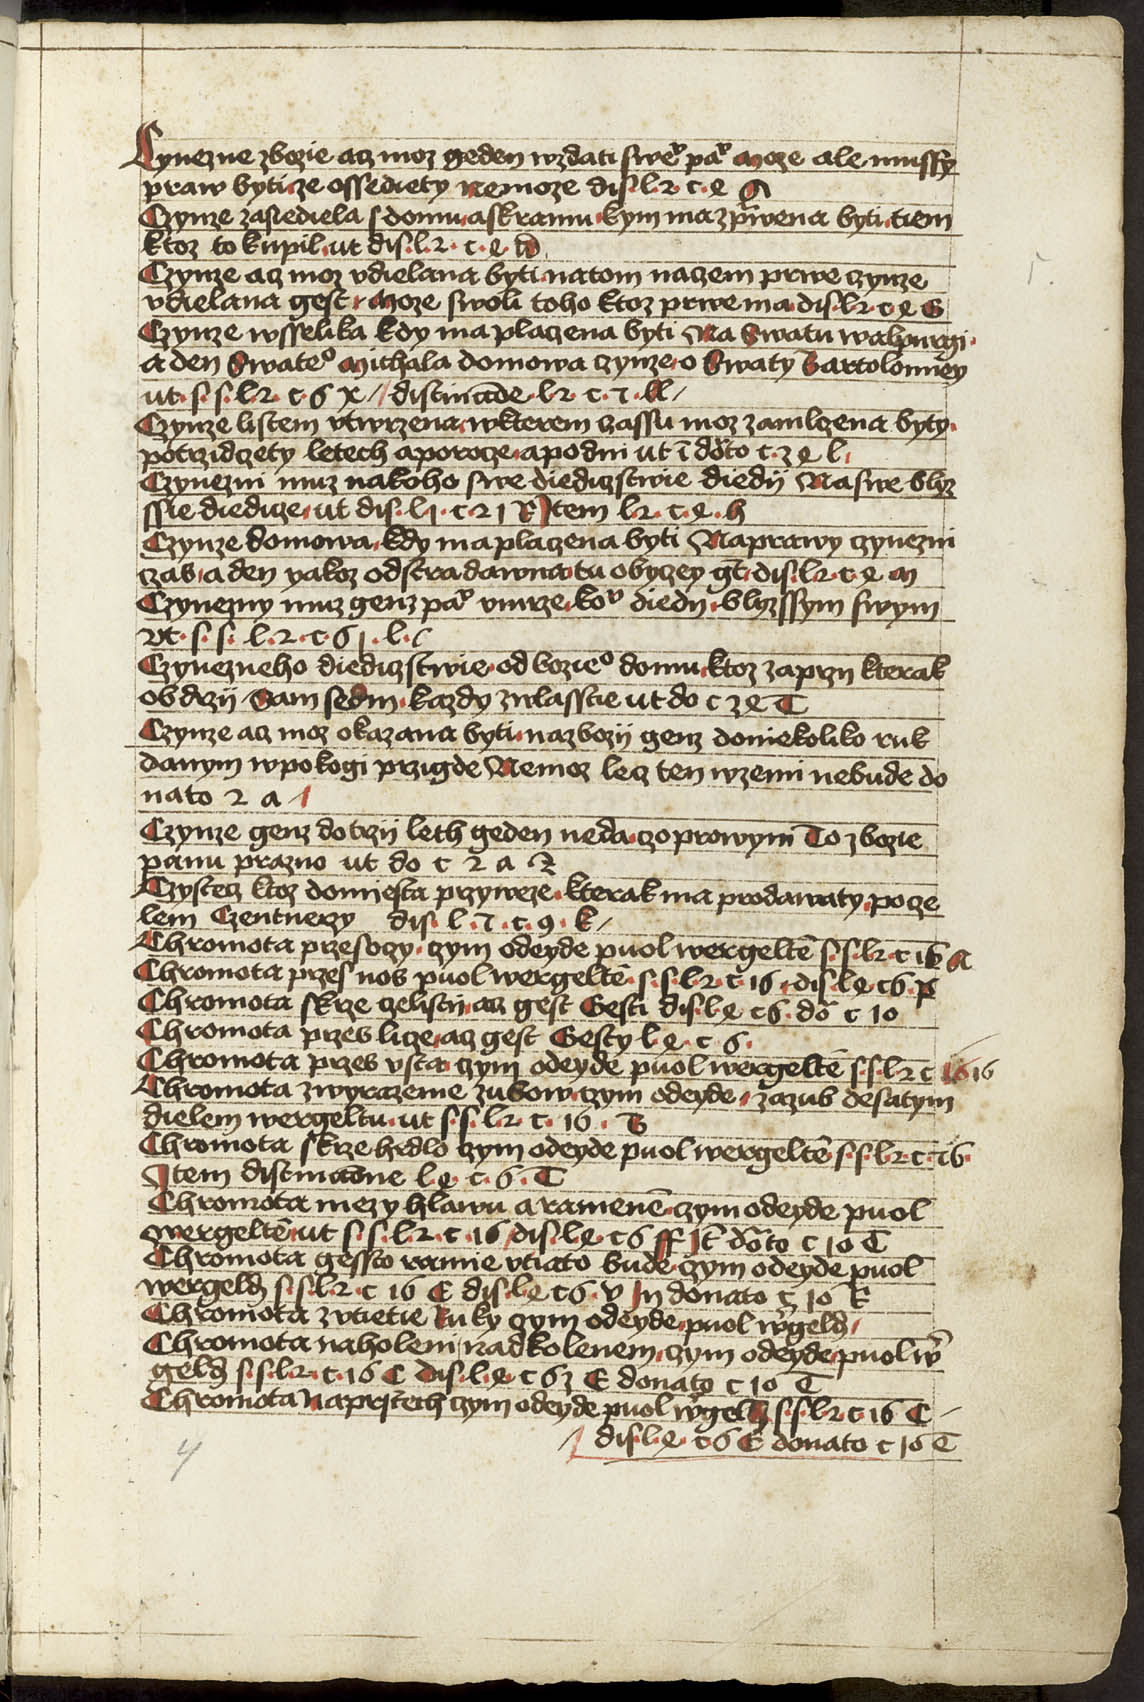 Cynezne zbozie acz moz geden wzdati swe pa moze ale mussy
praw byti ze ossediety nemoze dis l 2 c e
Czynze zasediela s domu a skramu kym ma zprwena byti tiem
ktoz to kupil ut dis l 2 c e
Czynze acz moz vdielana byti na tom naczem prwe czynze
vdielana gest moze swoli toho ktoz prwe ma dis l 2 c e G
Czynze wsselika kdy ma placzena byti Na Swatu walpurgi
a den Swate° Michala domowa czynze o Swaty Bartolomey
ut s s l 2 c 6 x
Czynze listem vtwrzena w kterem czassu moz zamlczena byty
po trzidczety letech a porocze a po dni ut
Czynezni muz na koho swe diediczstwie diedij Na swe blyz
ssie diedicze ut dis l 1 c 21 R Item l 2 c e h
Czynze domowa kdy ma placzena byti Na prawy czynezni
czas a den yakoz od stradawna tu obyczey dis l 2 c e m
Czynezny muz genz pa vmrze diedij blyzssym swym
vt s s l 2 c 6 1 l
Czynezneho diediczstwie od bozie° domu ktoz zaprzij kterak
obdrzij Sam sedm kazdy zwlasstie ut do c 2 e C
Czynze acz moz okazana byti na zbozij genz do niekoliko ruk
danym w pokogi przigde Nemoz lecz ten wzemi nebude do
nato 2 a
Czynze genz do trzij leth geden neda czo prowym To zbozie
panu prazno ut do c 2 a
Czystecz ktoz do miesta przyweze kterak ma prodawaty po cze
lem Czentnerzy dis l c 9 k
Chromota przes oczy czym odeyde puol wergelte s s l 2 c 16 A
Chromota przes nos puol wergelte s s l 2 c 16 dis l e c 6 p
Chromota skrze czelisti acz gest Gesti dis l e c 6 do c 10
Chromota przes licze acz gest Gesty l e c 6
Chromota przes vsta czym odeyde puol wergelte s s l 2 c 16 16
Chromota z wyrazenie zubow czym odeyde za zub desatym
dielem wergeltu ut s s l 2 c 16 B
Chromota skrze hrdlo czym odeyde puol wergelte s s l 2 c 16
Item distinctione l e c 6 C
Chromota mezy hlawu a ramene czym odeyde puol
wergelte ut s s l 2 c 16 dis l e c 6 ff It donato c 10 C
Chromota gessto ramie vtiato bude czym odeyde puol
wergeld s s l 2 c 16 C dis l e c 6 v In donato c 10 R
Chromota z vtietie Ruky czym odeyde puol wgeld
Chromota na holeni nad kolenem czym odeyde puol w
geld s s l 2 c 16 C dis l e c 6 z E donato c 10 C
Chromota Na prstech czym odeyde puol wgeld s s l 2 c 16 C
dis l e c 6 E donato c 10 C